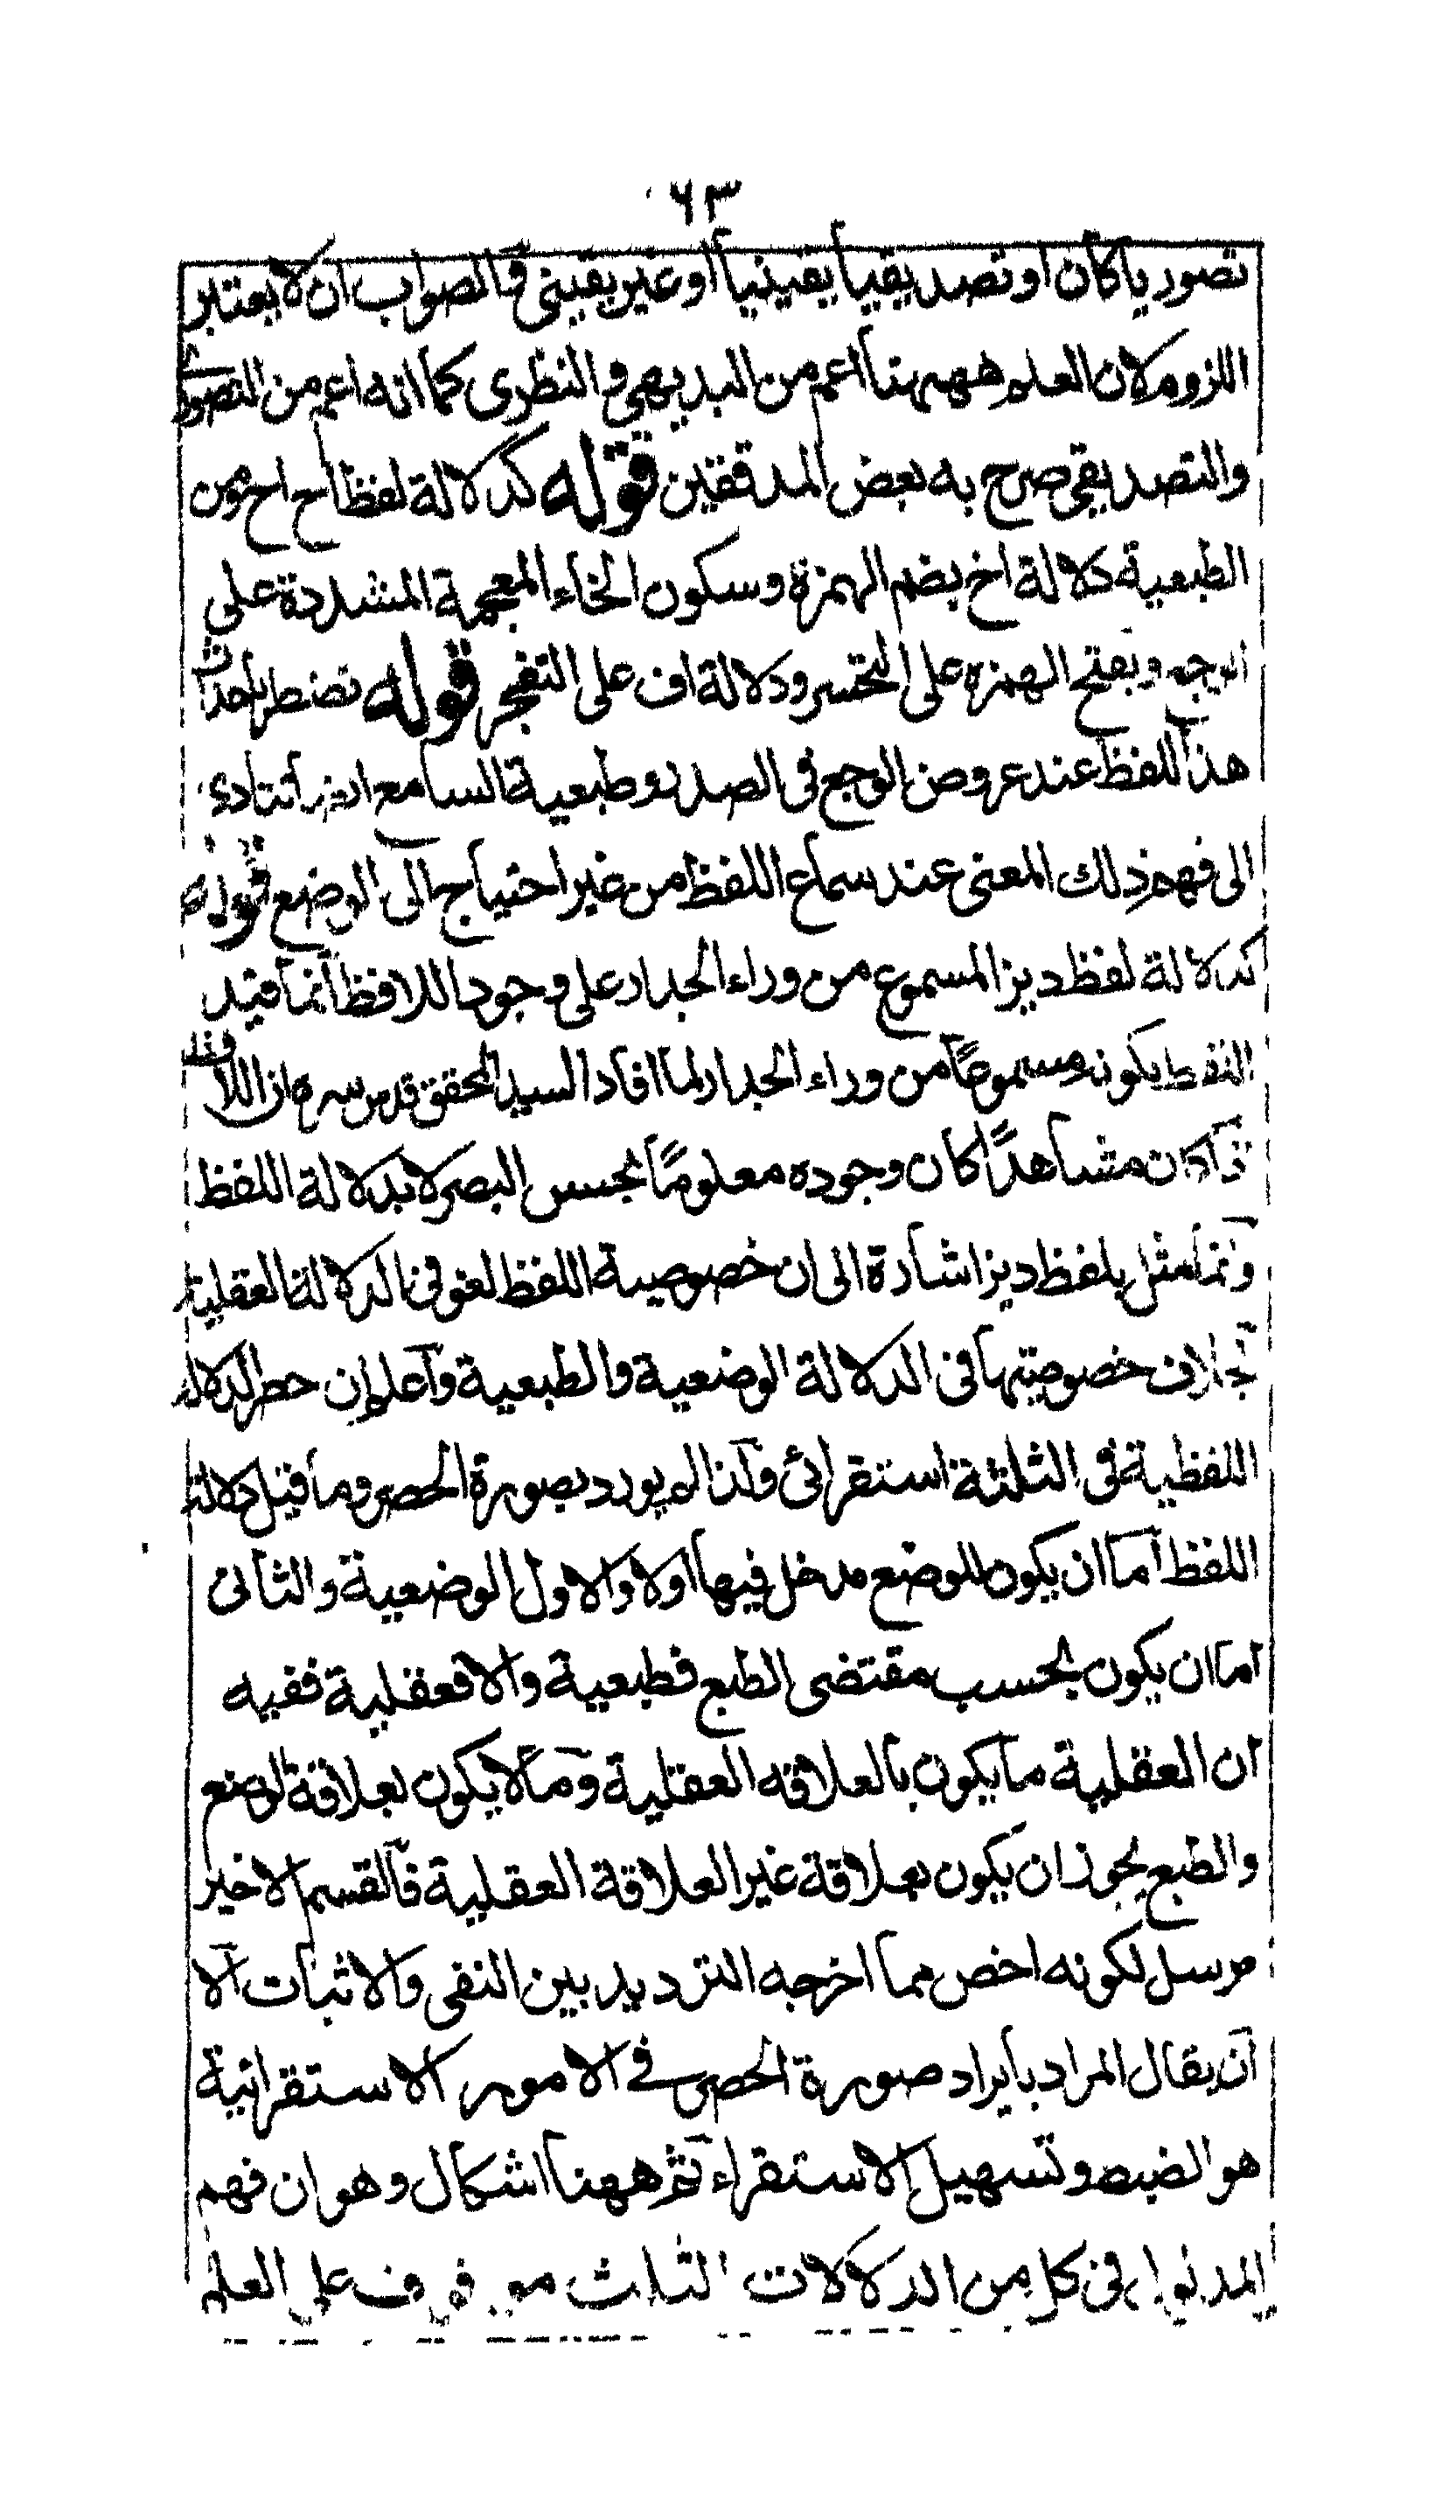 ٦٣
تصوريا كان او تصديقيا يقينيا او غير يقيني فالصواب ان لا يعتبر
اللزوم لان العلم ههنا اعم من البديهي والنظري كما انه اعم من التصوري
والتصديقي صرح به بعض المدققين قوله كدلالة لفظ اح اح ومن
الطبعية دلالة اخ بضم الهمزة وسكون الخاء المعجمة المشددة على
الوجع وبفتح الهمزه على التحسر ودلالة اف على التفجر قوله تضطر باحداث
هذا اللفظ عند عروض الوجع في الصدر وطبعية السامع ايضا تتادى
الى فهم ذلك المعنى عند سماع اللفظ من غير احتياج الى الوضع قوله
كدلالة لفظ ديز المسموع من وراء الجدار على وجود اللافظ انما قيد
اللفظ بكونه مسموعًا من وراء الجدار لما افاد السيد المحقق قدس سره ان اللافظ
اذا كان مشاهدًا كان وجوده معلومًا بحس البصر لا بدلالة اللفظ
وانما مثل بلفظ ديز اشارة الى ان خصوصية اللفظ لغو في الدلالة العقلية
بخلاف خصوصيتها في الدلالة الوضعية والطبعية واعلم ان حصر الدلالة
اللفظية في الثلثة استقرائي ولذا لم يورد بصورة الحصر وما قيل دلالة
اللفظ اما ان يكون للوضع مدخل فيها اولا والاول الوضعية والثاني
اما ان يكون بحسب مقتضى الطبع فطبعية والا فعقلية ففيه
ان العقلية ما يكون بالعلاقه العقلية وما لا يكون بعلاقة الوضع
والطبع يجوز ان يكون بعلاقة غير العلاقة العقلية فالقسم الاخير
مرسل لكونه اخص مما اخرجه الترديد بين النفي والاثبات الا
ان يقال المراد بايراد صورة الحصر في الامور الاستقرائية
هو الضبط وتسهيل الاستقراء ثم ههنا اشكال وهو ان فهم
المدلول في كل من الدلالات الثلث موقوف على العلم